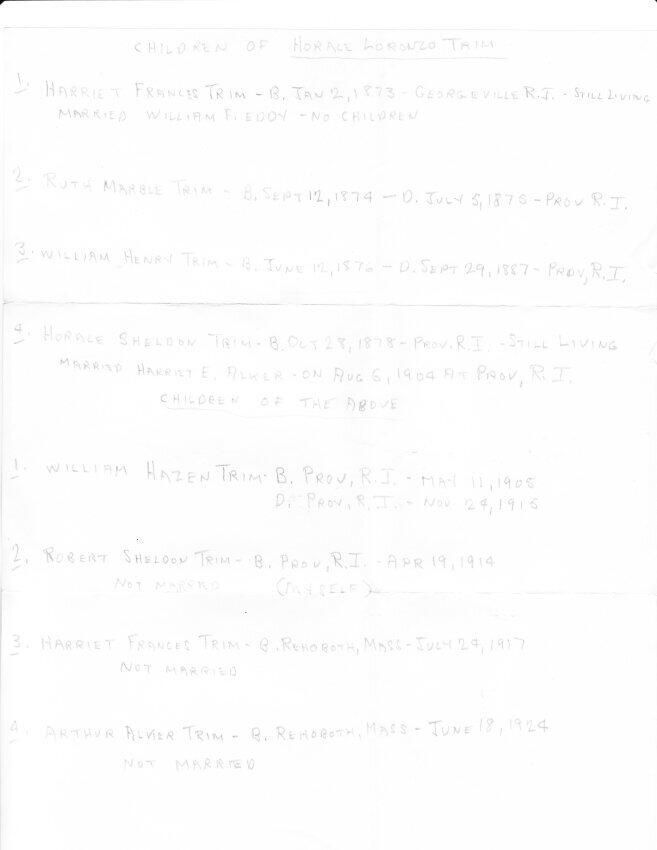 CHILDREN OF HORACE LORONZO TRIM
1. HARRIET FRANCES TRIM - B. JAN 2, 1873 - GEORGEVILLE R.I. - STILL LIVING
MARRIED WILLIAM F. EDDY - NO CHILDREN
2. RUTH MARBLE TRIM - B. SEPT 12, 1874 - D. JULY 5, 1875 - PROV R.I.
3. WILLIAM HENRY TRIM - B. JUNE 12, 1876 - D. SEPT 29, 1887 - PROV, R.I.
4. HORACE SHELDON TRIM - B. OCT 28, 1878 - PROV. R.I. - STILL LIVING
MARRIED HARRIET E. ALKER - ON AUG 6, 1904 AT PROV, R.I.
CHILDREN OF THE ABOVE
1. WILLIAM HAZEN TRIM - B. PROV, R.I. - MAY 11, 1905
D. PROV, R.I. - NOV 24, 1915
2. ROBERT SHELDON TRIM - B. PROV, R.I. - APR 19, 1914
NOT MARRIED (MYSELF)
3. HARRIET FRANCES TRIM - B. REHOBOTH, MASS - JULY 24, 1917
NOT MARRIED
4. ARTHUR ALKER TRIM - B. REHOBOTH, MASS - JUNE 18, 1924
NOT MARRIED